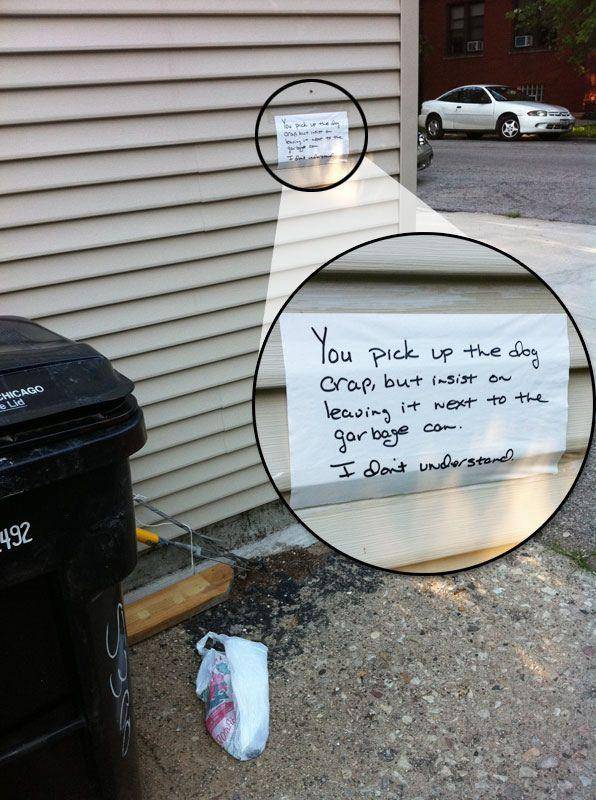 You pick up the dog
crap, but insist on
leaving it next to the
garbage can.
I don't understand.
You pick up the dog
crap, but insist on
leaving it next to the
garbage can.
I don't understand.
CHICAGO
e Lid
492